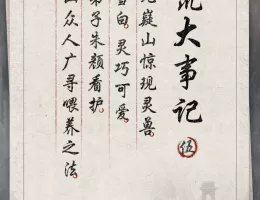 大事记
伍
嶷山惊现灵兽
白，灵巧可爱。
弟子朱颜看护，
众人广寻喂养之法。